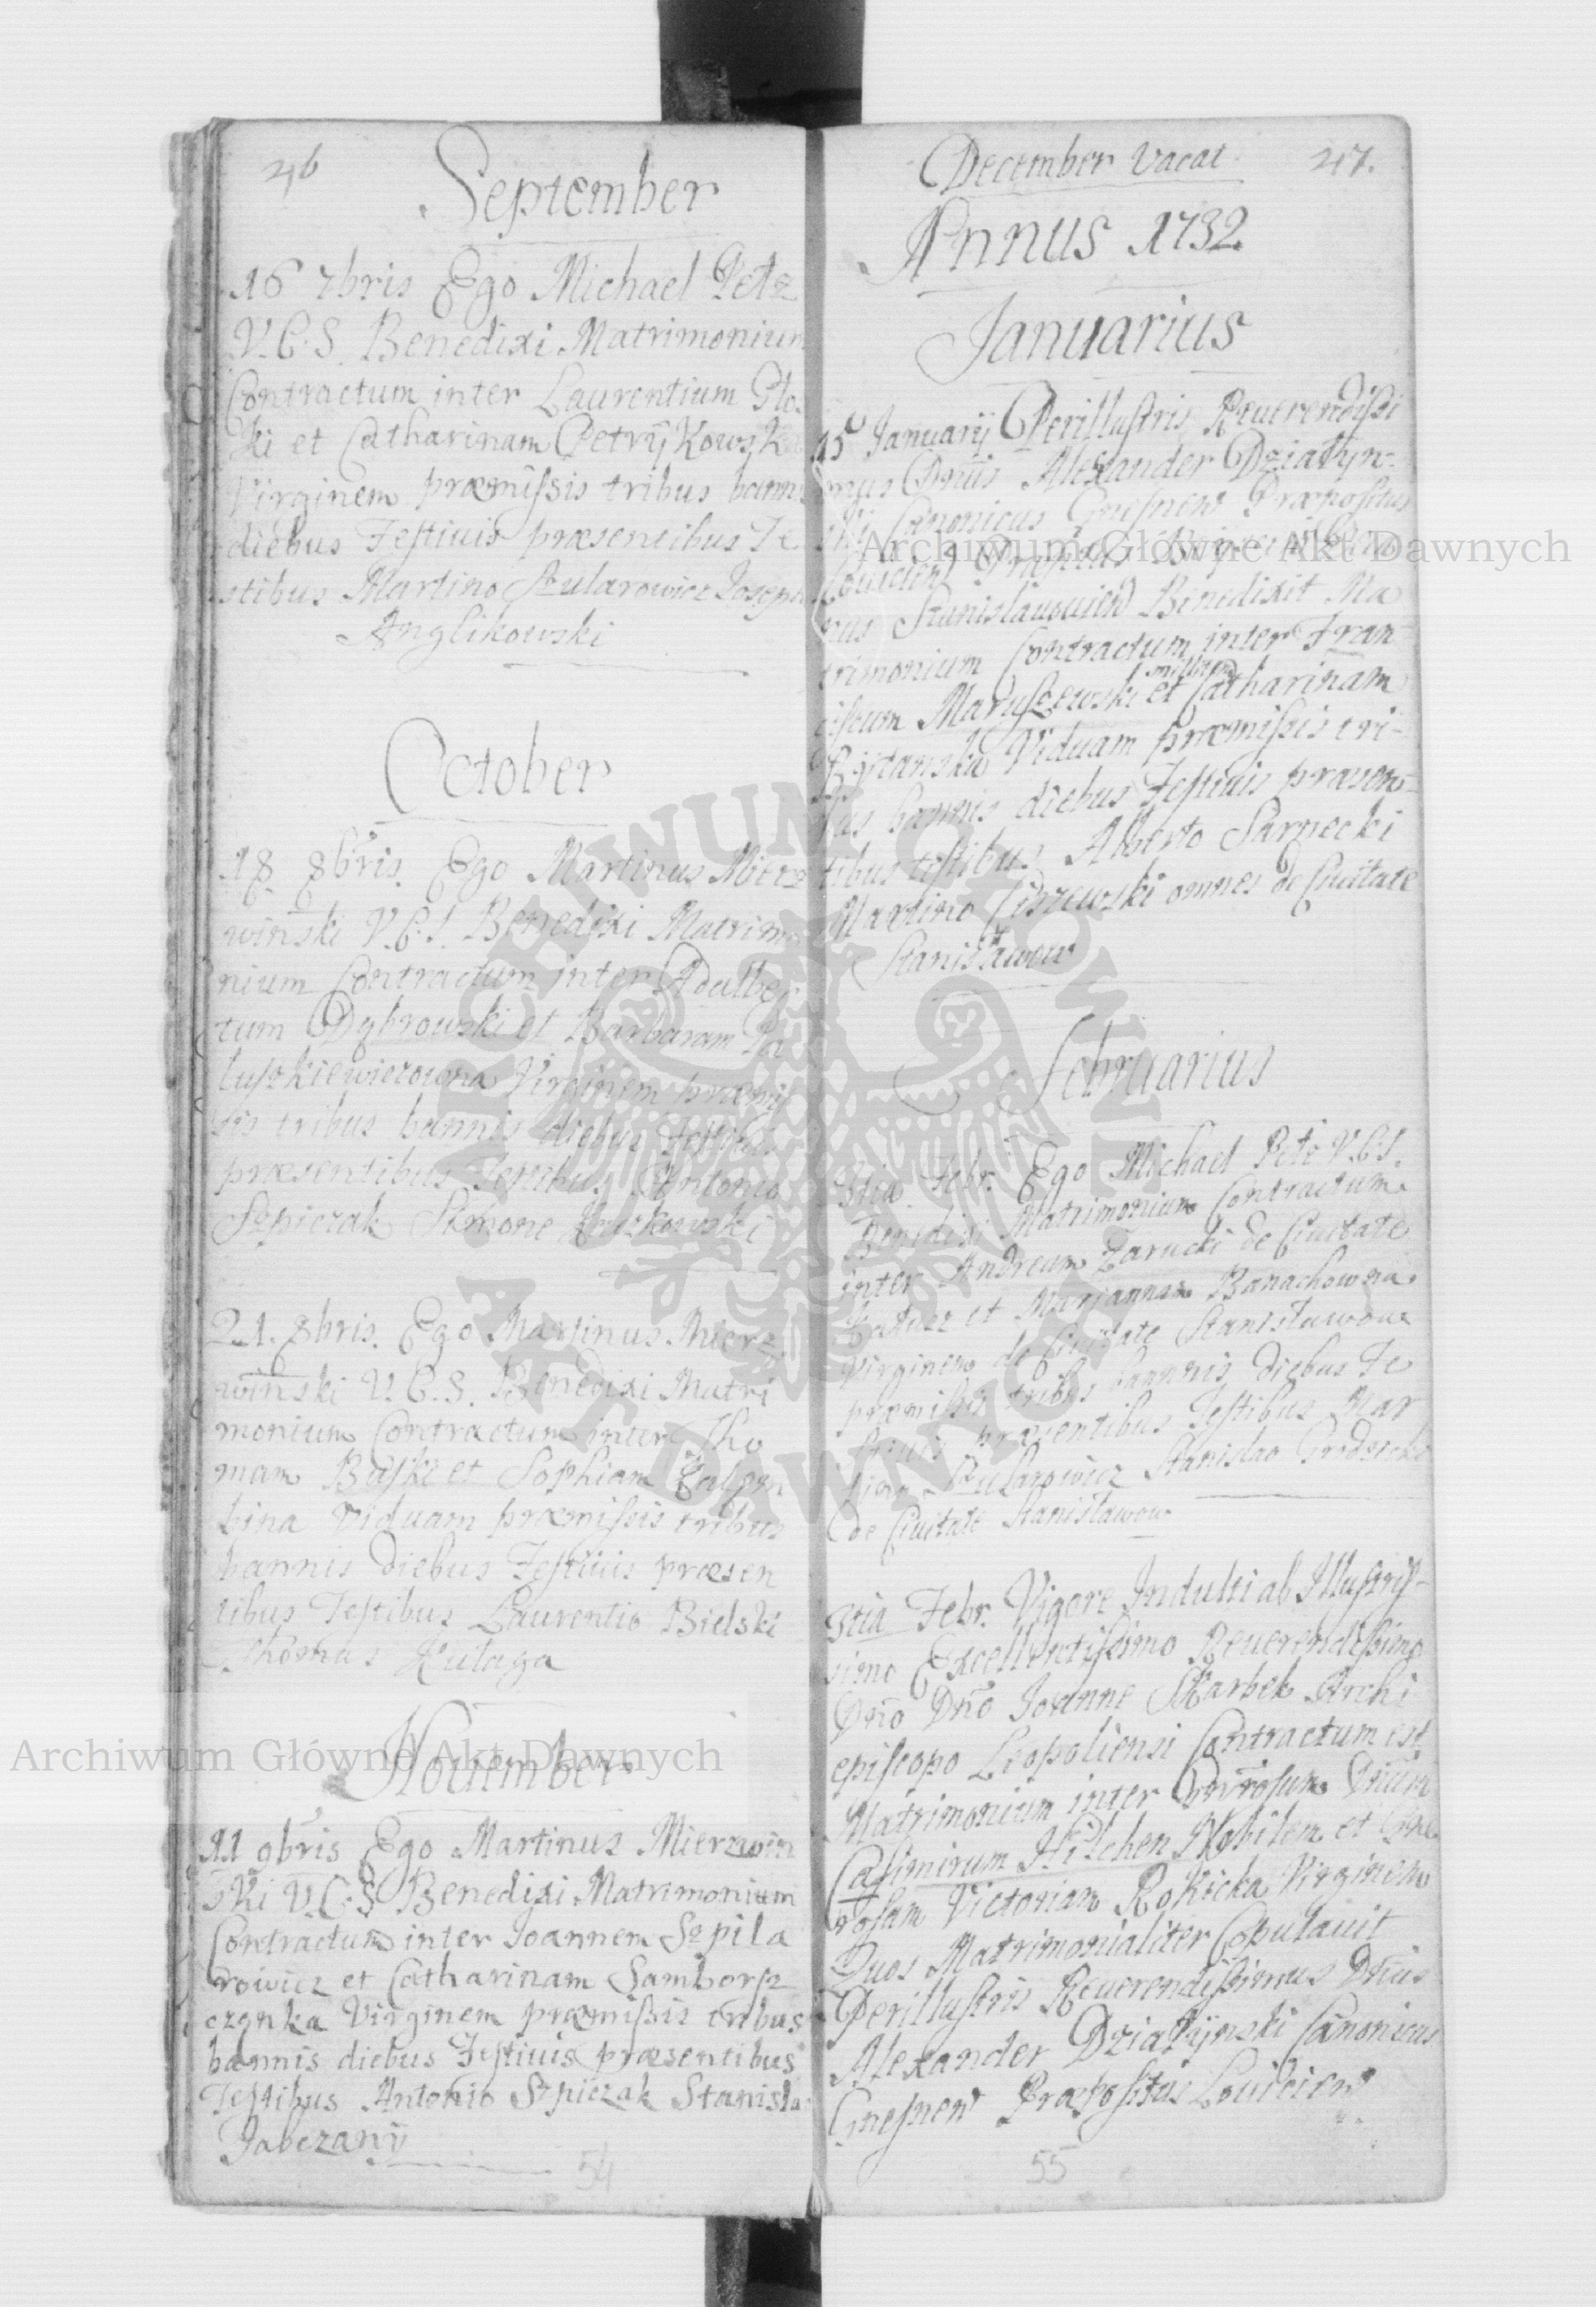 46
September
16 7bris Ego Michael Petz
V.C.S. Benedixi Matrimonium
Contractum inter Laurentium Glo
ki et Catharinam Petryjkowsk
Virginem præmissis tribus bann
diebus Festiuis præsentibus Te
stibus Martino Szularowicz Joseph
Anglikowski
October
18 8bris. Ego Martinus Mierz
winski V.C.S. Benedixi Matrimo
nium Contractum inter Adalber
tum Dąbrowski et Barbaram Pa
luszkiewiczowna Virginem præmis
sis tribus bannis diebus Festiuis
præsentibus Testibus Antonio
Szpiczak Simone
21. 8bris. Ego Martinus Mierz
winski V.C.S. Benedixi Matri
monium Contractum inter Tho
mam Baski et Sophiam
bina Viduam præmissis tribus
bannis diebus Festiuis præsen
tibus Testibus Laurentio Bielski
Thomas Kulaga
Nouember
11 9bris Ego Martinus Mierzwin
ski V.C.S Benedixi Matrimonium
Contractum inter Joannem Szpila
rowicz et Catharinam Samborsz
czonka Virginem præmissis tribus
bannis diebus Festiuis præsentibus
Testibus Antonio Szpiczak Stanisla
Jabczanij
54
December Vacat 47.
Annus 1732.
Januarius
15 Januarij Perillustris Reuerendissi
mus Dnus Alexander Dziatyn-
ski Canonicus Gnesnen Præpositus
Louicien
nus Stanislawouien Benedixit Ma
trimonium Contractum inter Fran
ciscum Maruszewski et Catharinam
Viduam præmissis tri-
bus bannis diebus Festiuis præsen-
tibus testibus Alberto Sarnecki
Martino Ciszewski omnes de Ciuitate
Stanisławow
Februarius
3tia Febr. Ego Michael Petz V.C.S.
Benedixi Matrimonium Contractum
inter Andream Zarucki de Ciuitate
Hałicz et Mariannam Banachowna
Virginem de Ciuitate Stanisławow
præmissis tribus bannis diebus Fe
stiuis præsentibus Testibus Mar
tino Szularowicz Stanislao Grodzicki
de Ciuitate Stanisławow
3tia Febr. Vigore Indulti ab Illustris-
simo Excellentissimo Reuerendissimo
Dno Dno Joanne Skarbek Archi
episcopo Leopoliensi Contractum est
Matrimonium inter Generosum Dnum
Casimirum Hilchen Nobilem et Gene
rosam Victoriam Rokicka Virginem
Quos Matrimonialiter Copulauit
Perillustris Reuerendissimus Dnus
Alexander Dziatyjnski Canonicus
Gnesnen Præpositus Louicien
55
Archiwum Główne Akt Dawnych
Archiwum Główne Akt Dawnych
ARCHIWUM GŁÓWNE
AKT DAWNYCH